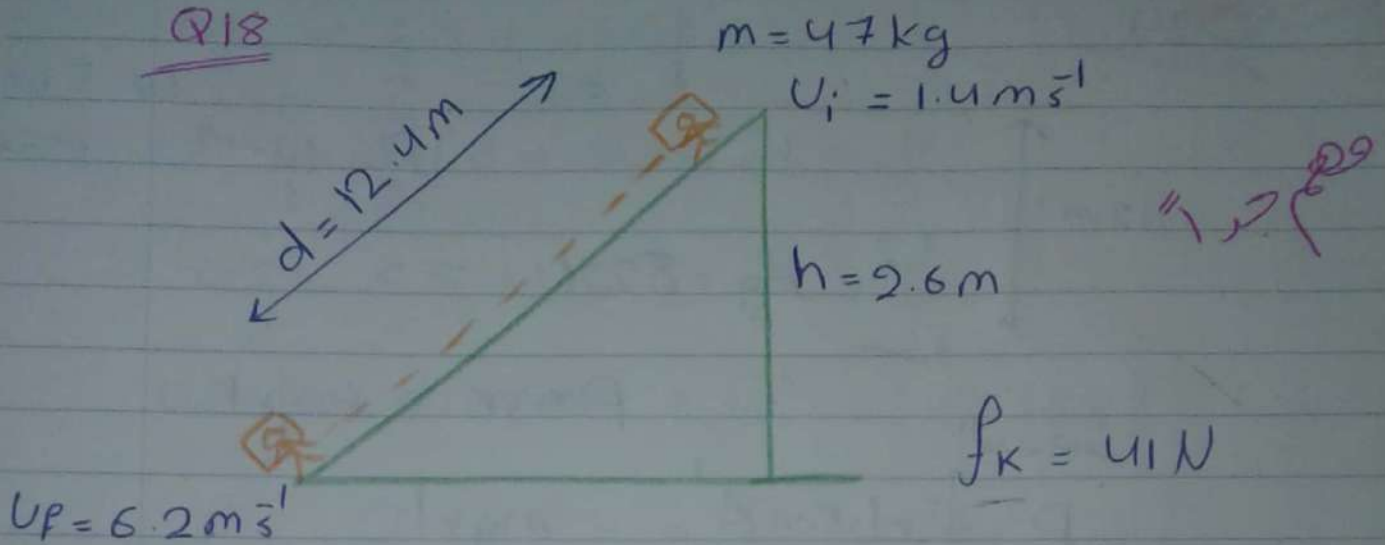 Q18
m = 47 kg
Ui = 1.4 m s⁻¹
d = 12.4 m
h = 2.6 m
fK = 41 N
Uf = 6.2 m s⁻¹